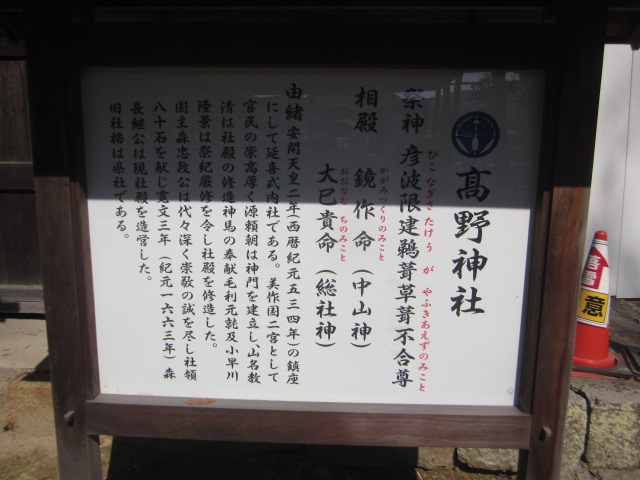 高野神社
祭神 彦波限建鵜葺草葺不合尊
ひこなぎさ たけ う が やふきあえずのみこと
相殿 鏡作命(中山神)
かがみつくりのみこと
大巳貴命(総社神)
おおなむ ちのみこと
由緒 安閑天皇二年(西暦紀元五三四年)の鎮座
にして延喜式内社である。美作国二宮として
官民の崇高厚く源頼朝は神門を建立し、山名教
清は社殿の修造神馬の奉献毛利元就及小早川
隆景は祭紀厳修を令し社殿を修造した。
国主森忠政公は代々深く崇敬の誠を尽し社領
八十石を献じ寛文三年(紀元一六六三年)森
長継公は現社殿を造営した。
旧社格は県社である。
落雪
注意